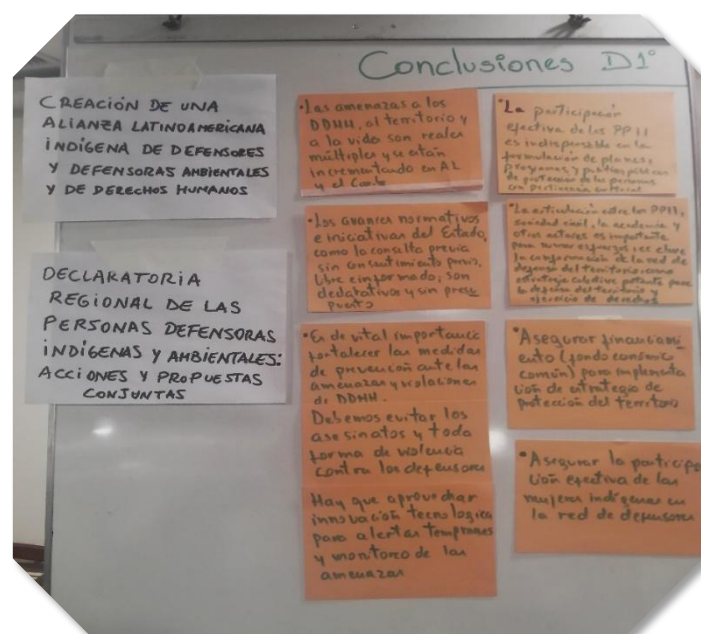 Conclusiones D1°
CREACIÓN DE UNA
ALIANZA LATINOAMERICANA
INDÍGENA DE DEFENSORES
Y DEFENSORAS AMBIENTALES
Y DE DERECHOS HUMANOS
DECLARATORIA
REGIONAL DE LAS
PERSONAS DEFENSORAS
INDÍGENAS Y AMBIENTALES:
ACCIONES Y PROPUESTAS
CONJUNTAS
•Las amenazas a los
DDHH, al territorio y
a la vida son reales
múltiples y se están
incrementando en AL
y el
•Los avances normativos
e iniciativas del Estado,
como la consulta previa
sin consentimiento previo,
libre e informado; son
declarativos y sin presu
puesto
•Es de vital importancia
fortalecer las medidas
de prevención ante las
amenazas y violaciones
de DDHH.
Debemos evitar los
asesinatos y toda
forma de violencia
contra los defensores
Hay que aprovechar
innovación tecnologica
para alertas tempranas
y monitoreo de las
amenazas
•La participación
efectiva de los PPII
es indispensable en la
formulación de planes,
programas y políticas públicas
de protección de las personas
con pertinencia cultural
•La articulación entre los PPII,
sociedad civil, la academia y
otros actores es importante
para sumar esfuerzos; es clave
la conformación de la red de
defensa del territorio como
estrategia colectiva potente para
la defensa del territorio y
ejercicio de derechos
•Asegurar financiami
ento (fondo económico
común) para implementa
ción de estrategia de
protección del territorio
•Asegurar la participa
ción efectiva de las
mujeres indígenas en
la red de defensores